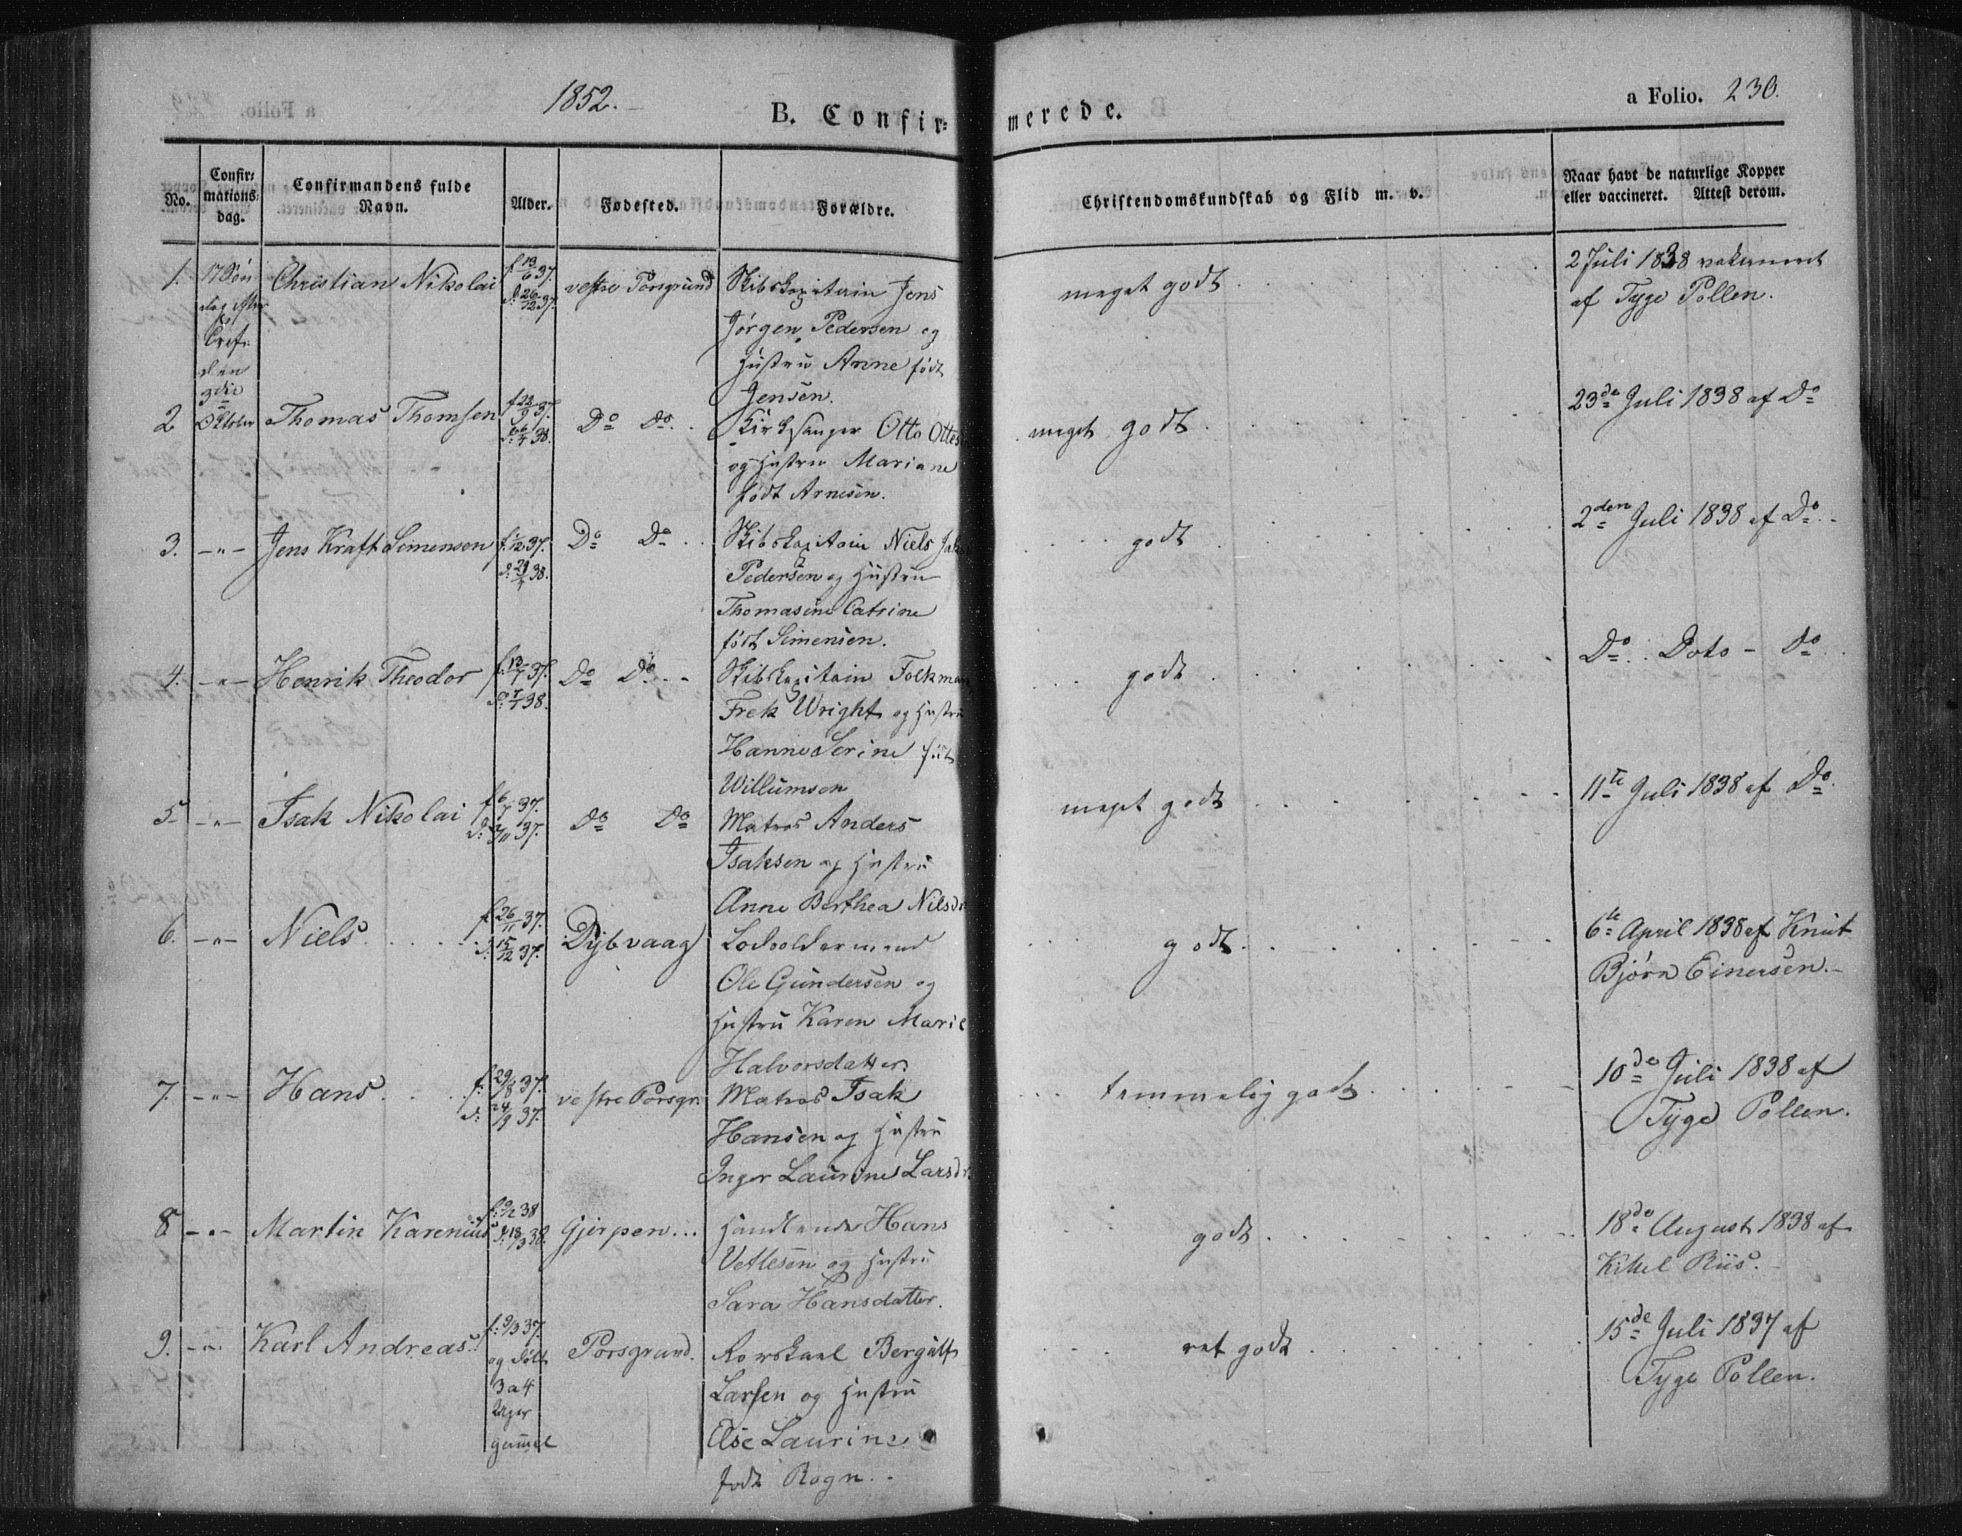 1852.
B. Confir-
merede.
a Folio. 230.
No.
Confir-
mations-
dag.
Confirmandens fulde
Navn.
Alder.
Fødested.
Forældre.
Christendomskundskab og Flid m. v.
Naar havt de naturlige Kopper
eller vaccineret. Attest derom.
1. 17 Søn Christian Nikolai f 13/6 37. vestre Porsgrund Skibskapitain Jens meget godt 2 Juli 1838 vakcineret
dag efter d: 26/12 37. Jørgen Pedersen og af Tyge Pollen.
Tref. Hustru Anne født
den
3die Jensen.
2 Oktober Thomas Thomsen 37. Do Do. Kirkesanger Otto meget godt 23de Juli 1838 af Do
38. og Hustru Mariane
født Arnesen.
3. -"- Jens Kraft Simensen 37. Do Do Skibskapitain Niels godt 2den Juli 1838 af Do
38. Pedersen og Hustru
Thomasine Catrine
født Simensen.
4. -"- Henrik Theodor 37. Do Do Skibskapitain godt Do Doto - Do
38. Frek Wright og Hustru
Hanne Serine født
Willumsen
5 -"- Isak Nikolai f 6/7 37. Do Do Matros Anders meget godt 11te Juli 1838 af Do
37. Isaksen og Hustru
Anne Berthea Nilsdr
6. -"- Niels. f. 26/11 37. Dybvaag Lodsoldermand godt 6te April 1838 af Knut
d: 15/12 37. Ole Gundersen og Bjørn Einersen.
Hustru Karen Marie
Halvorsdatter.
7. -"- Hans f: 29/8 37. vestre Porsgr. Matros Isak temmelig godt 10de Juli 1838 af
d: 24/9 37. Hansen og Hustru Tyge Pollen.
Inger Laurine Larsdr.
8. -"- Martin Karenius 38 Gjerpen Handlende Hans godt 18de August 1838 af
d: 18/3 38. Vetlesen og Hustru Kittel Riis.
Sara Hansdatter.
9. -"- Karl Andreas. f: 9/3 37. Porsgrund. Bergulf ret godt 15de Juli 1837 af
og døbt Larsen og Hustru Tyge Pollen.
3 a 4
Uger Else Laurine
gammel født Rogn.